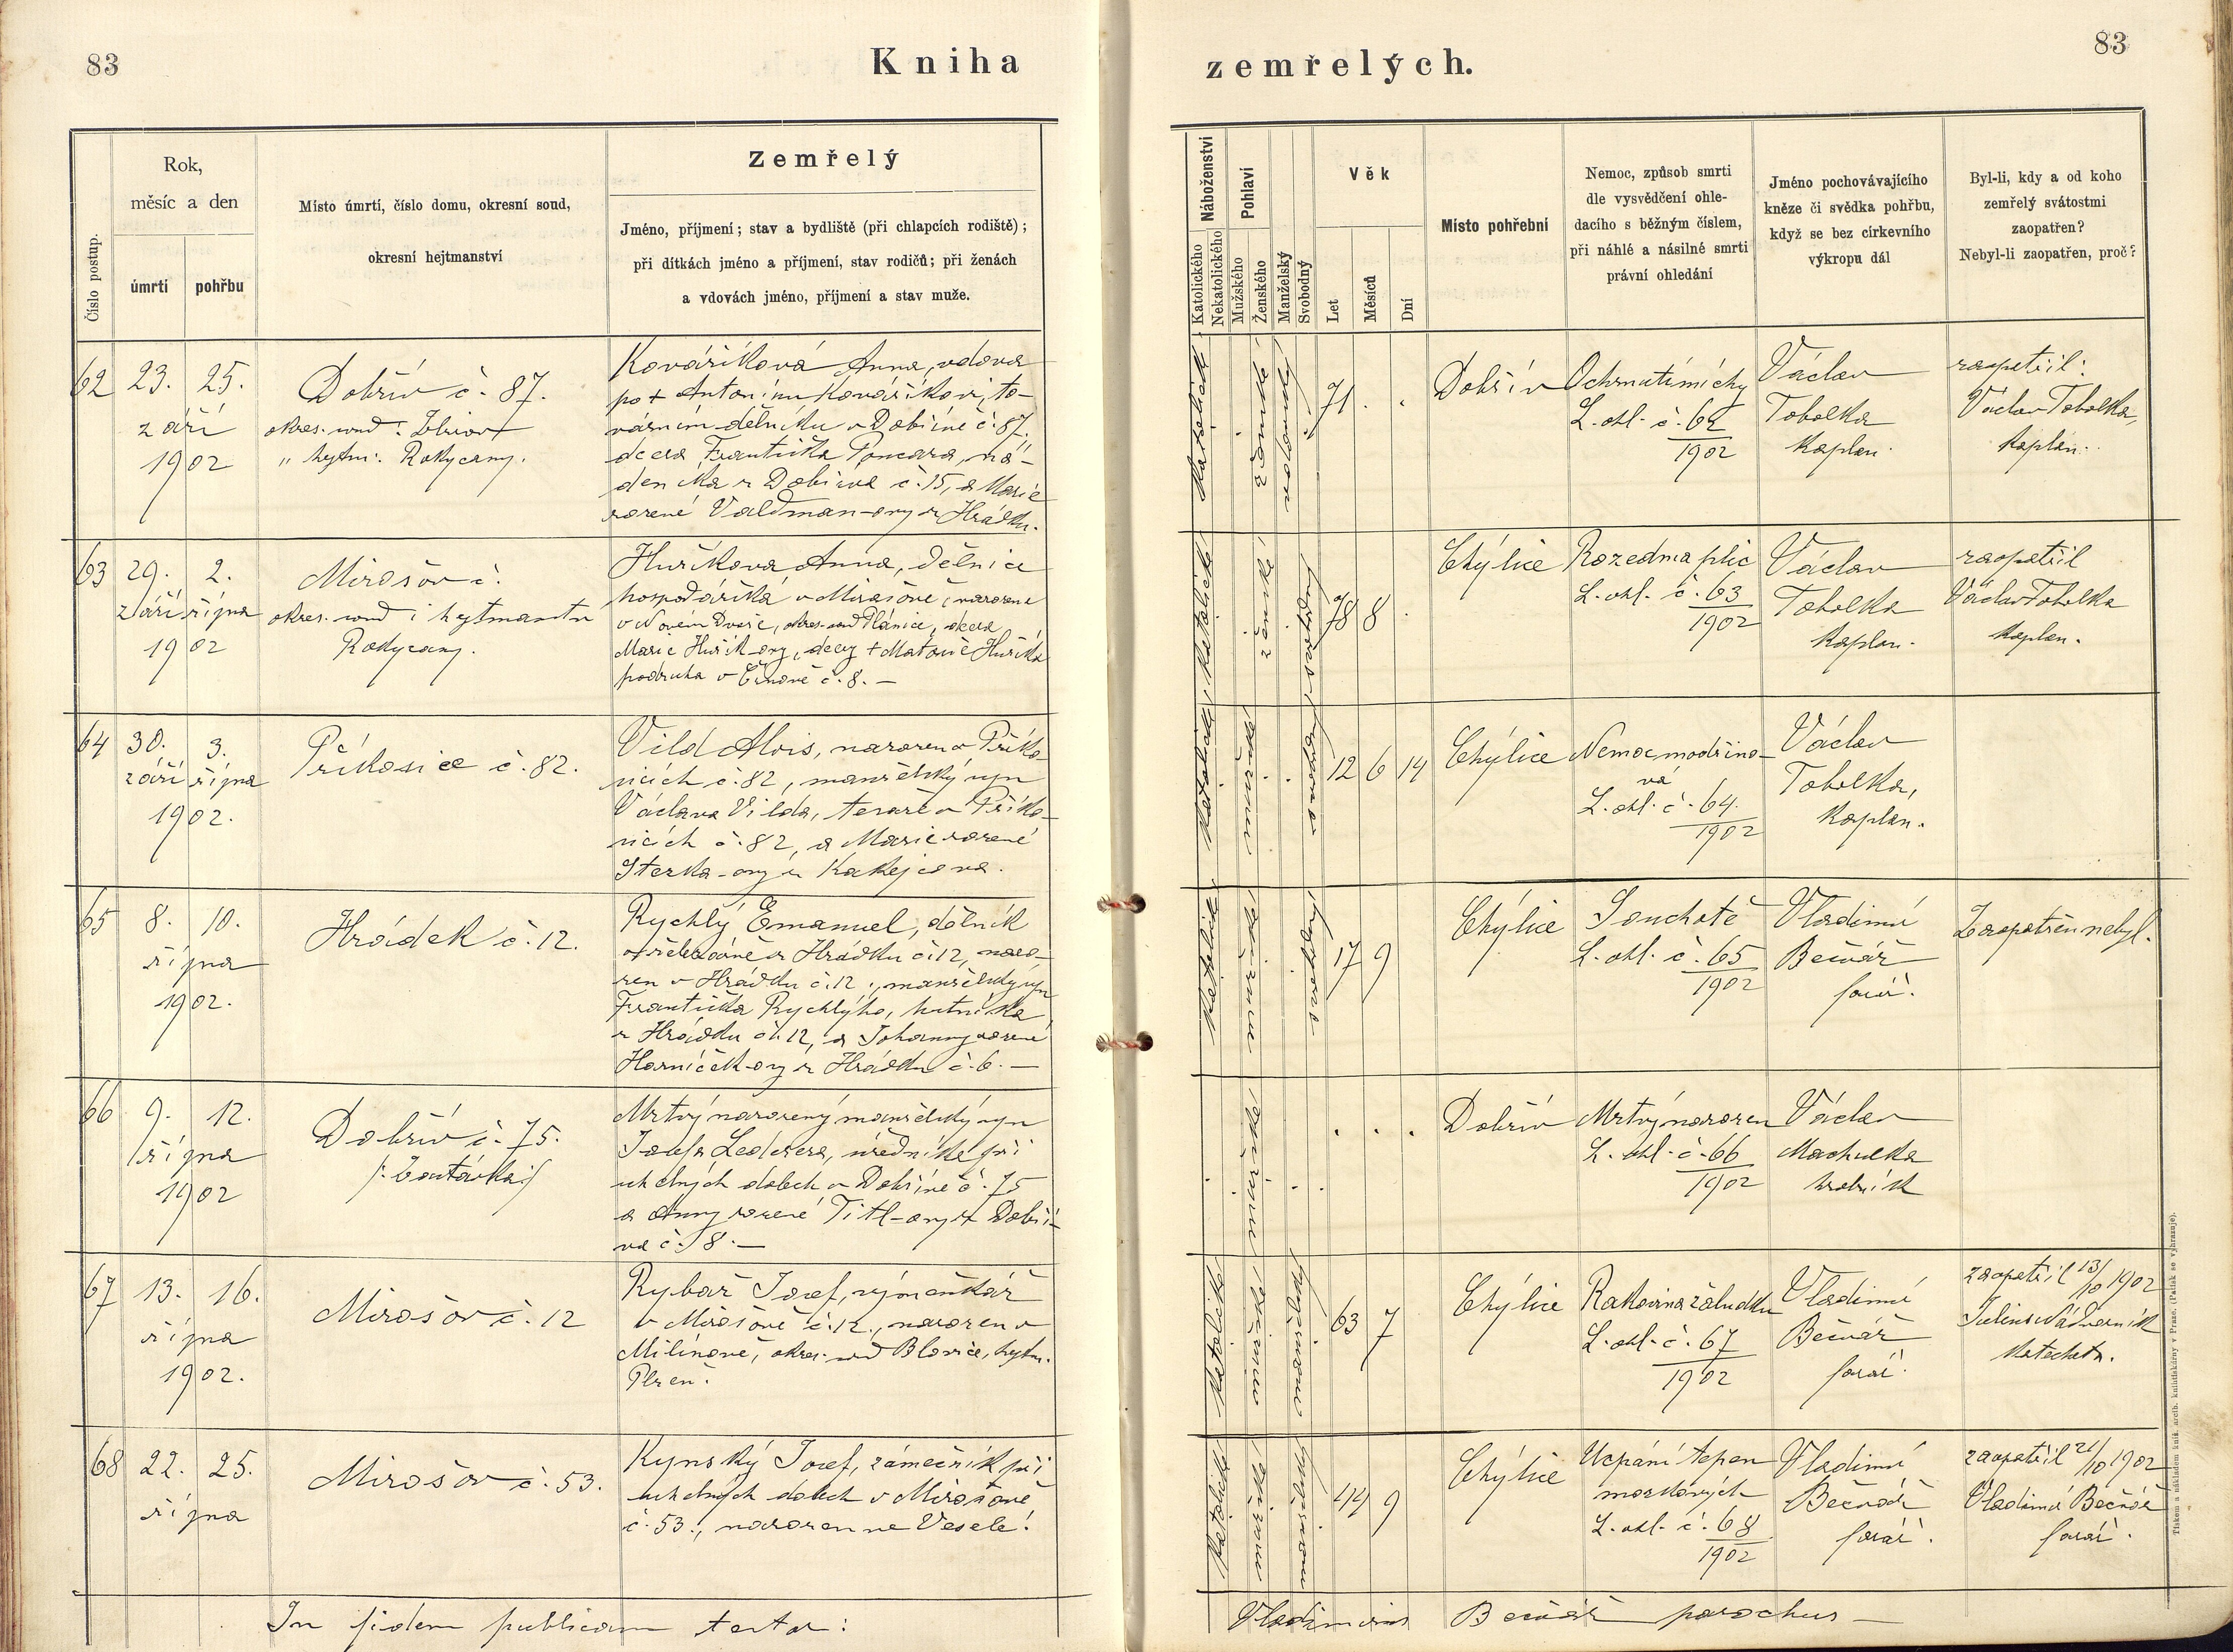 83
Kniha
zemřelých.
83
Číslo postup.
Rok,
měsíc a den
úmrtí
pohřbu
Místo úmrtí, číslo domu, okresní soud,
okresní hejtmanství
Zemřelý
Jméno, příjmení; stav a bydliště (při chlapcích rodiště);
při dítkách jméno a příjmení, stav rodičů; při ženách
a vdovách jméno, příjmení a stav muže.
Náboženství
Katolického
Nekatolického
Pohlaví
Mužského
Ženského
Manželský
Svobodný
Věk
Let
Měsíců
Dní
Místo pohřební
Nemoc, způsob smrti
dle vysvědčení ohle-
dacího s běžným číslem,
při náhlé a násilné smrti
právní ohledání
Jméno pochovávajícího
kněze či svědka pohřbu,
když se bez církevního
výkropu dál
Byl-li, kdy a od koho
zemřelý svátostmi
zaopatřen?
Nebyl-li zaopatřen, proč?
62
23. 25.
září
1902
Dobřív č. 87.
okres. soud: Zbirov
„ hejtm: Rokycany.
Kovaříková Anna, vdova
po + Antonínu Kovaříkovi, to-
várním dělníku v Dobřívě č. 87.
dcera Františka Poncara, ná-
deníka z Dobříva č. 15, a Marie
rozené Valdman-ovy z Hrádku.
katolické
ženské
71 . .
Dobřív
Ochrnutí míchy
L. ohl. č. 62
1902
Václav
Tobolka
kaplan.
zaopatřil:
Václav Tobolka,
kaplan.
63
29. 2.
září října
1902
Mirošov č.
okres. soud i hejtmanstv
Rokycany.
Huříkova Anna, dělnice
hospodářská v Mirošově, narozena
v Novém Dvoře, okres. soud Plánice, dcera
Marie Huřík-ovy, dcery + Matouše Huříka
podruha v č. 8. —
katolické
ženské
78 8 .
Chýlice
Rozedma plic
L. ohl. č. 63
1902
Václav
Tobolka
kaplan.
zaopatřil
Václav Tobolka
kaplan.
64
30. 3.
září října
1902.
Příkosice č. 82.
Vild Alois, narozen v Příko-
sicích č. 82, manželský syn
Václava Vilda, tesaře v Příko-
sicích č. 82, a Marie rozené
Sterka-ovy z Kakejcova.
katolické
mužské
12 6 14
Chýlice
Nemoc modřino-
vá
L. ohl. č. 64.
1902
Václav
Tobolka,
kaplan.
65
8. 10.
října
1902.
Hrádek č. 12.
Rychlý Emanuel, dělník
v Hrádku č. 12, naro-
zen v Hrádku č. 12, manželský syn
Františka Rychlýho, hutníka
z Hrádku č. 12, a Johanny rozené
Horníček-ovy z Hrádku č. 6. —
katolické
17 9
Chýlice
Souchotě
L. ohl. č. 65
1902
Vladimír
Bečvář
farář.
Zaopatřen nebyl.
66
9. 12.
října
1902
Dobřív č. 75.
Mrtvý narozený manželský syn
Josefa Lederera, úředníka při
uhelných dolech v Dobřívě č. 75
a Anny rozené Titl-ovy z Dobří-
va č. 18. —
. . .
Dobřív
Mrtvý narozen
L. ohl. č. 66
1902
Václav
Machulka
hrobník
67
13. 16.
října
1902.
Mirošov č. 12
Rybář Josef, výměnkář
v Mirošově č. 12., narozen v
Milínově, okres. soud Blovice, hejtm.
Plzeň.
katolické
63 7
Chýlice
Rakovina žaludku
L. ohl. č. 67
1902
Vladimír
Bečvář
farář.
zaopatřil 13/10 1902
Julius Nádvorník
katecheta.
68
22. 25.
října
Mirošov č. 53.
Kynský Josef, zámečník při
uhelných dolech v Mirošově
č. 53., narozen ve Veselé.
katolické
44 9
Chýlice
Ucpání tepen
mozkových
L. ohl. č. 68
1902
Vladimír
Bečvář
farář.
zaopatřil 21/10 1902
Vladimír Bečvář
farář.
In fidem publicam testor:
Vladimirus Bečvář parochus —